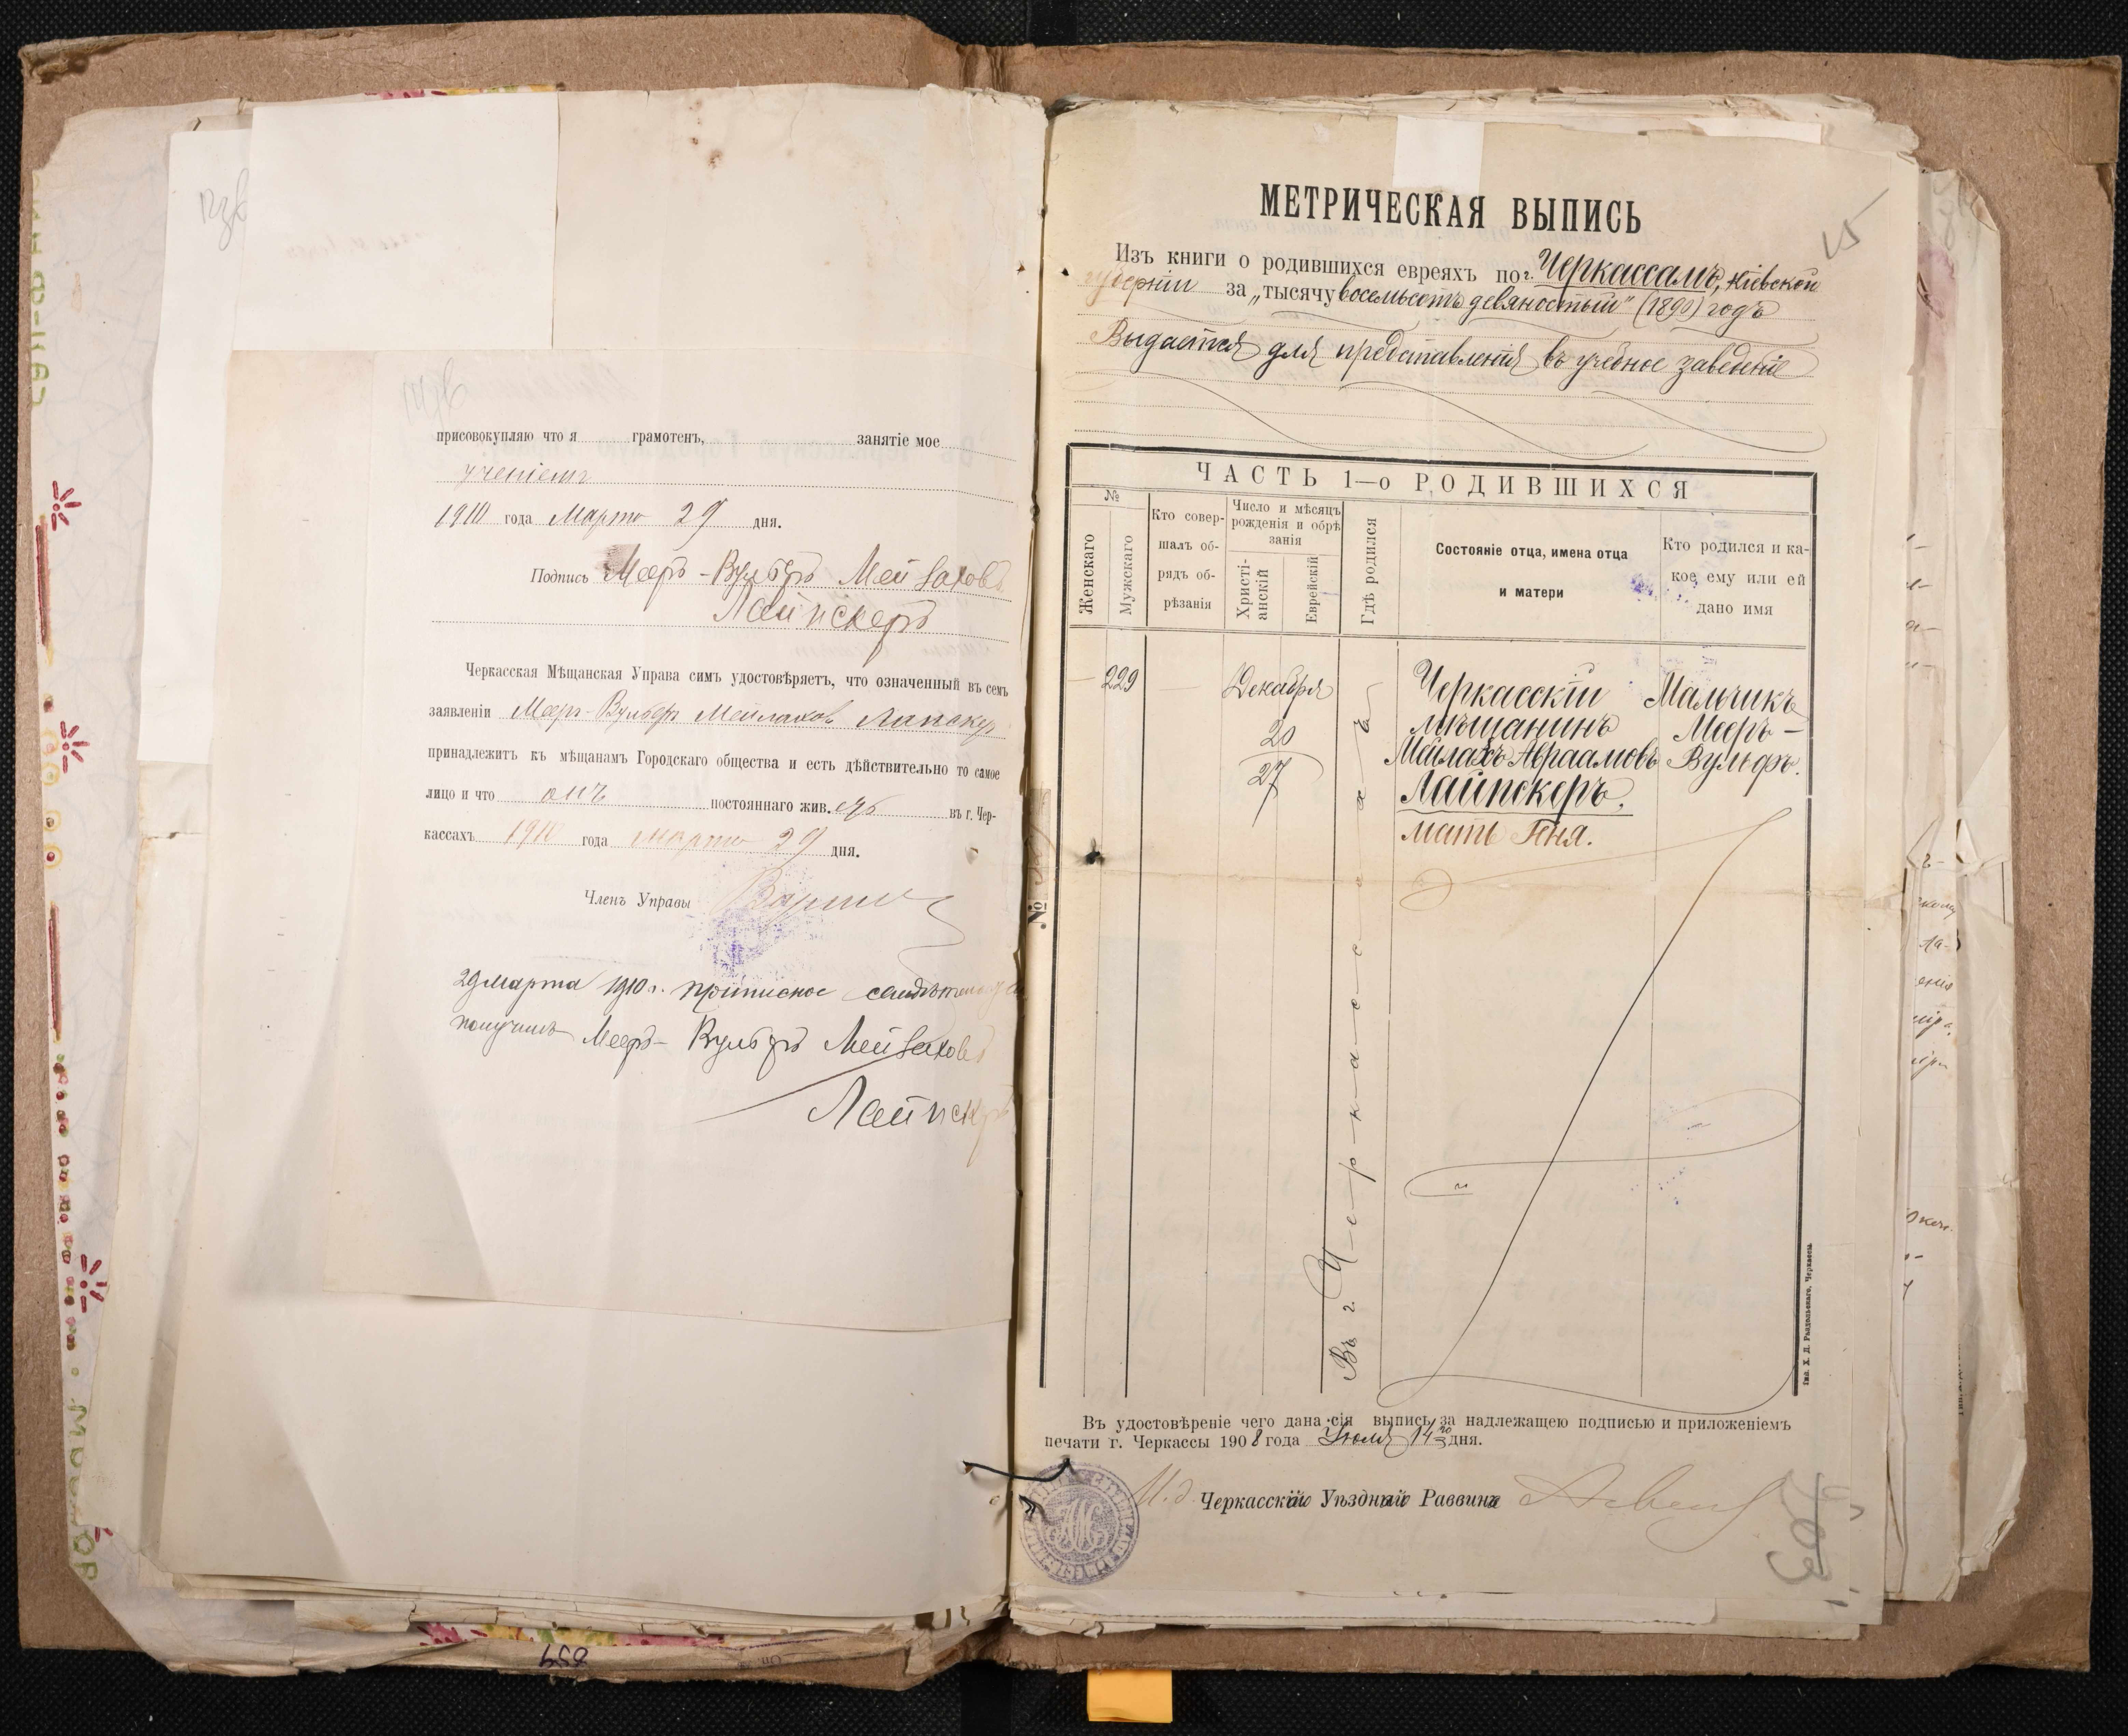 присовокупляю что я грамотенъ, занятіе мое
ученіемъ
1910 года Марта 29 дня.
Подпись Мееръ-Вульфъ Мейлаховъ
Лайпскеръ
Черкасская Мѣщанская Управа симъ удостовѣряетъ, что означенный въ семъ
заявленіи Мееръ-Вульфъ Мейлаховъ Лапскеръ
принадлежитъ къ мѣщанамъ Городскаго общества и есть дѣйствительно то самое
лицо и что онъ постояннаго жив. въ г. Чер-
кассахъ 1910 года Марта 29 дня.
Членъ Управы
29 марта 1910 г. приписное
получилъ Мееръ-Вульфъ Мейлаховъ
Лайпскеръ
МЕТРИЧЕСКАЯ ВЫПИСЬ
15
Изъ книги о родившихся евреяхъ по г. Черкассамъ, Кіевской
губерніи за „тысячу восемьсотъ девяностый" (1890) годъ
Выдается для представленія въ учебное заведеніе
ЧАСТЬ 1—о РОДИВШИХСЯ
№
Женскаго
Мужскаго
Кто совер-
шалъ об-
рядъ об-
рѣзанія
Число и мѣсяцъ
рожденія и обрѣ
занія
Христі-
анскій
Еврейскій
Гдѣ родился
Состояніе отца, имена отца
и матери
Кто родился и ка-
кое ему или ей
дано имя
— 229 — Декабря
20
27
Въ г. Черкассахъ
Черкасскій
мѣщанинъ
Мейлахъ Авраамовъ
Лайпскеръ.
мать Геня.
Мальчикъ
Мееръ-
Вульфъ.
Тип. Х. Д. Раздольскаго, Черкассы.
Въ удостовѣреніе чего дана сія выпись за надлежащею подписью и приложеніемъ
печати г. Черкассы 1908 года Іюля 14го дня.
И. д. Черкасскаго Уѣзднаго Раввина
№
503
859